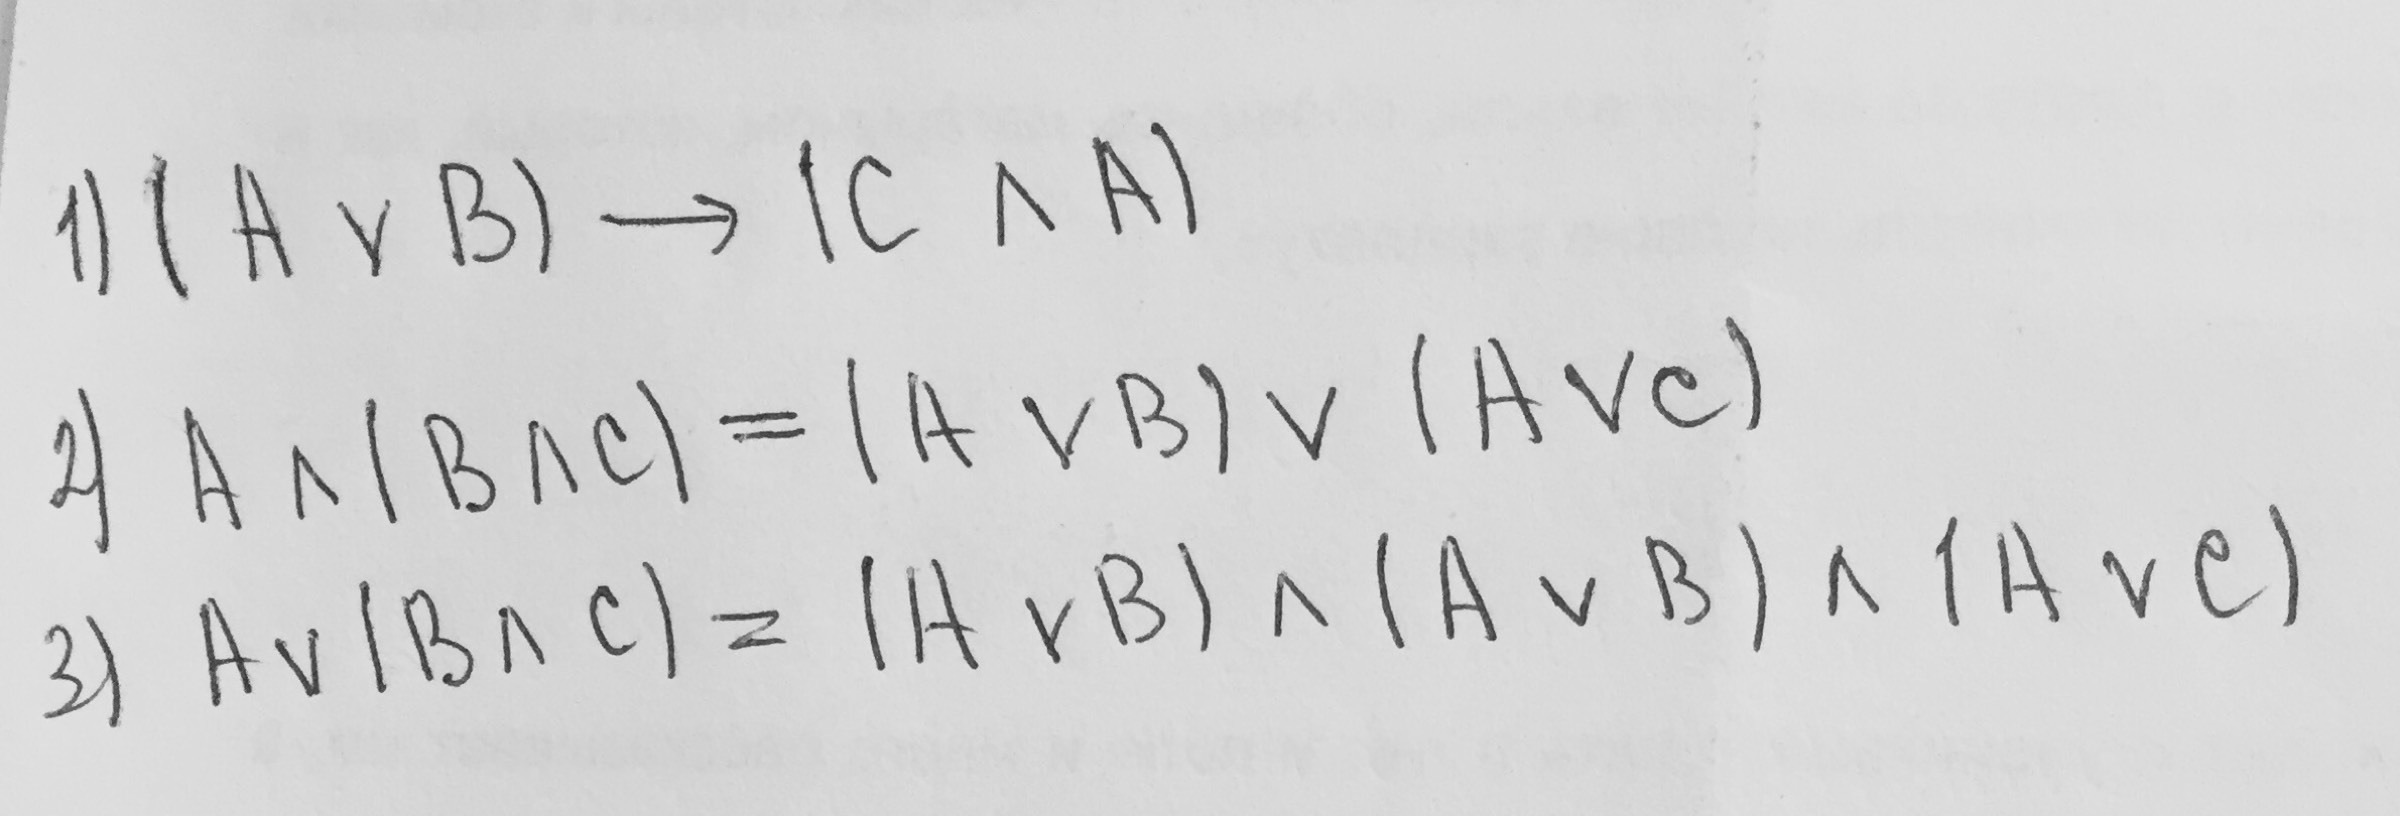 1) (A ∨ B) → (C ∧ A)
2) A ∧ (B ∧ C) = (A ∨ B) ∨ (A ∨ C)
3) A ∨ (B ∧ C) = (A ∨ B) ∧ (A ∨ B) ∧ (A ∨ C)